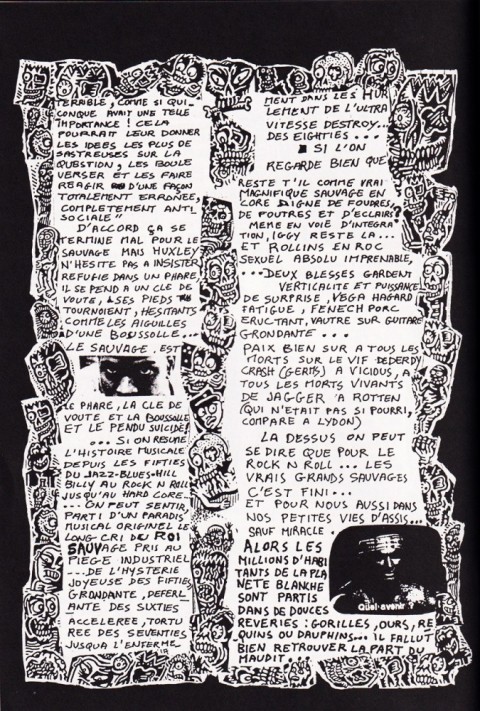 TERRIBLE, COMME SI QUI-
CONQUE AVAIT UNE TELLE
IMPORTANCE! CELA
POURRAIT LEUR DONNER
LES IDEES LES PLUS DE
SASTREUSES SUR LA
QUESTION, LES BOULE
VERSER ET LES FAIRE
REAGIR D'UNE FAÇON
TOTALEMENT ERRONÉE,
COMPLETEMENT ANTI
SOCIALE"
D'ACCORD ÇA SE
TERMINE MAL POUR LE
SAUVAGE MAIS HUXLEY
N'HESITE PAS A INSISTER
REFUGIE DANS UN PHARE
IL SE PEND A UN CLE DE
VOUTE, SES PIEDS
TOURNOIENT, HESITANTS
COMME LES AIGUILLES
D'UNE BOUSSOLLE...
LE SAUVAGE, EST
LE PHARE, LA CLE DE
VOUTE ET LA BOUSSOLE
ET LE PENDU SUICIDÉ!
... SI ON RESUME
L'HISTOIRE MUSICALE
DEPUIS LES FIFTIES
DU JAZZ-BLUES-HILL
BILLY AU ROCK N ROLL
JUSQU'AU HARD CORE...
... ON PEUT SENTIR
PARTI D'UN PARADIS
MUSICAL ORIGINEL LE
LONG CRI DU ROI
SAUVAGE PRIS AU
PIEGE INDUSTRIEL
...DE L'HYSTERIE
JOYEUSE DES FIFTIES
GRONDANTE, DEFERL
ANTE DES SIXTIES
ACCELEREE, TORTU
REE DES SEVENTIES
JUSQU'A L'ENFERME
MENT DANS LES HUR
LEMENT DE L'ULTRA
VITESSE DESTROY...
DES EIGHTIES...
SI L'ON
REGARDE BIEN QUE
RESTE T'IL COMME VRAI
MAGNIFIQUE SAUVAGE EN
CORE DIGNE DE FOUDRES,
DE FOUTRES ET D'ECLAIRS?
MEME EN VOIE D'INTEGRA
TION, IGGY RESTE LA...
ET ROLLINS EN ROC
SEXUEL ABSOLU IMPRENABLE,
...DEUX BLESSES GARDENT
VERTICALITE ET PUISSANCE
DE SURPRISE, VEGA HAGARD
FATIGUE, FENECH PORC
ERUCTANT, VAUTRE SUR GUITARE
GRONDANTE...
PAIX BIEN SUR A TOUS LES
MORTS SUR LE VIF DE DERBY
CRASH (GERMS) A VICIOUS, A
TOUS LES MORTS VIVANTS
DE JAGGER A ROTTEN
(QUI N'ETAIT PAS SI POURRI,
COMPARE A LYDON)
LA DESSUS ON PEUT
SE DIRE QUE POUR LE
ROCK N ROLL... LES
VRAIS GRANDS SAUVAGES
C'EST FINI...
ET POUR NOUS AUSSI DANS
NOS PETITES VIES D'ASSIS...
SAUF MIRACLE.
ALORS LES
MILLIONS D'HABI
TANTS DE LA PLA
NETE BLANCHE
SONT PARTIS
DANS DE DOUCES
Quel avenir
REVERIES: GORILLES, OURS, RE
QUINS OU DAUPHINS... IL FALLUT
BIEN RETROUVER LA PART DU
MAUDIT...